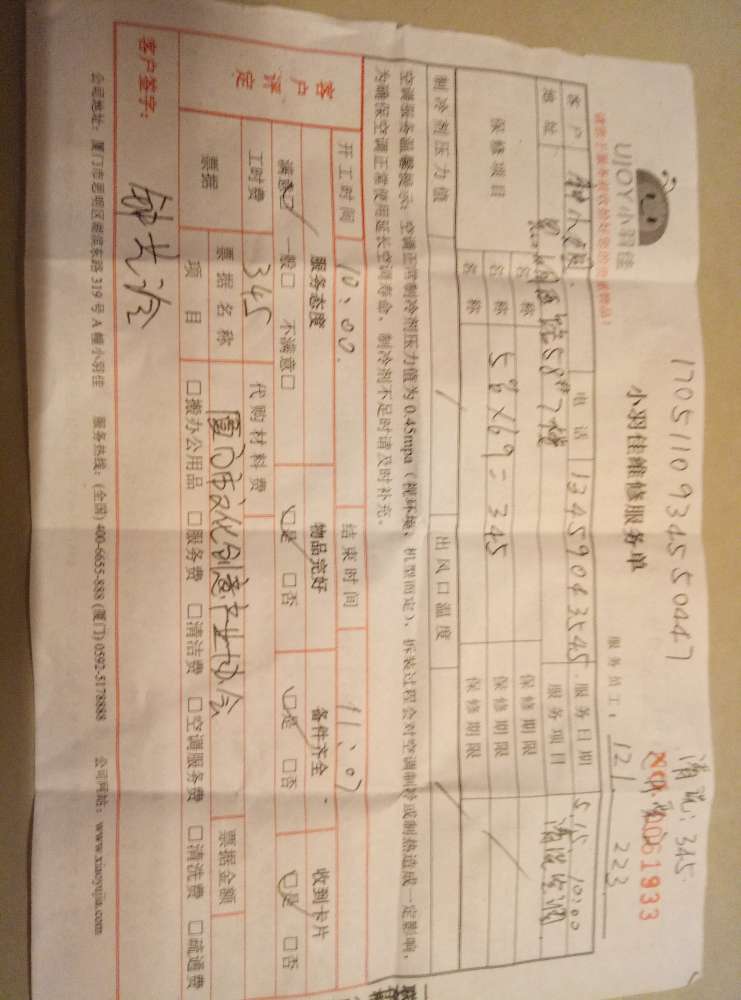 1705110934550447
清洗:345
UJOY小羽佳
小羽佳维修服务单
NO.0061933
服务员工: 121 223
客户
电话 13459043545
服务日期 5.15 10:00
地址
58#7楼
服务项目 清洗空调
保修项目
名称
保修期限
名称 5台×69=345
保修期限
名称
保修期限
制冷剂压力值
出风口温度
空调服务温馨提示:空调正常制冷剂压力值为0.45mpa(视环境、机型而定),拆装过程会对空调制冷或制热造成一定影响,
为确保空调正常使用延长空调寿命,制冷剂不足时请及时补充。
开工时间 10:00
结束时间 11:07
客户评定
服务态度
物品完好
备件齐全
收到卡片
满意□ 一般□ 不满意□
□是 □否
□是 □否
□是 □否
工时费 345
代购材料费
票据
票据名称 厦门市文化创意产业协会
票据金额
项目 □搬办公用品 □服务费 □清洁费 □空调服务费 □清洗费 □疏通费
客户签字:
公司地址:厦门市思明区湖滨东路319号A幢小羽佳 服务热线:(全国)400-6655-888 (厦门)0592-5178888 公司网站:www.xiaoyujia.com